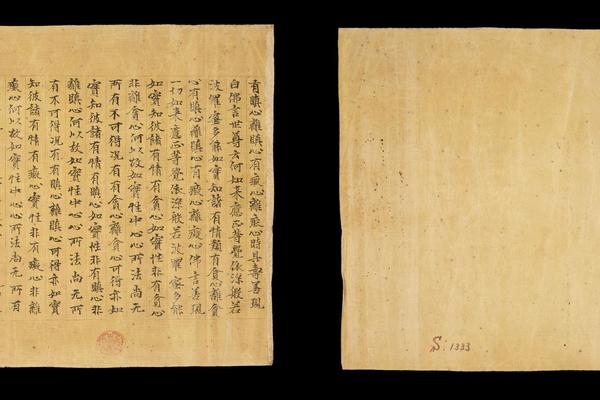 有瞋心離瞋心有癡心離癡心時具壽善現
白佛言世尊云何如來應正等覺依深般若
波羅蜜多能如實知諸有情類有貪心離貪
心有瞋心離瞋心有癡心離癡心佛言善現
一切如來應正等覺依深般若波羅蜜多能
如實知彼諸有情有貪心如實性非有貪心
非離貪心何以故如實性中心心所法尚無
所有不可得況有有貪心離貪心可得亦如
實知彼諸有情有瞋心如實性非有瞋心非
離瞋心何以故如實性中心心所法尚無所
有不可得況有有瞋心離瞋心可得亦如實
知彼諸有情有癡心如實性非有癡心非離
癡心何以故如實性中心心所法尚無所有
S. 1333